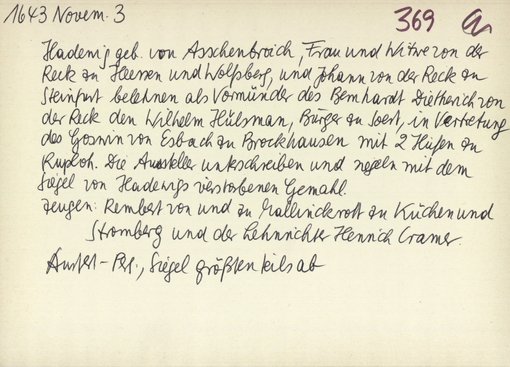 1643 Novem. 3
369
Hadewig geb. von Asschenbroich, Frau und Witwe von der
Reck zu Heeren und Wolfsberg, und Johann von der Reck zu
Steinfurt belehnen als Vormünder des Bernhardt Dietherich von
der Reck den Wilhelm Hülsman, Bürger zu Soest, in Vertretung
des Goswin von Esbach zu Brockhausen mit 2 Hufen zu
Ruploh. Die Aussteller unterschreiben und siegeln mit dem
Siegel von Hadewigs verstorbenen Gemahl.
Zeugen: Rembert von und zu Gallinckrott zu Küchen und
Stromberg und der Lehnrichter Henrich Cramer.
Ausfert.-Per., Siegel größtenteils ab